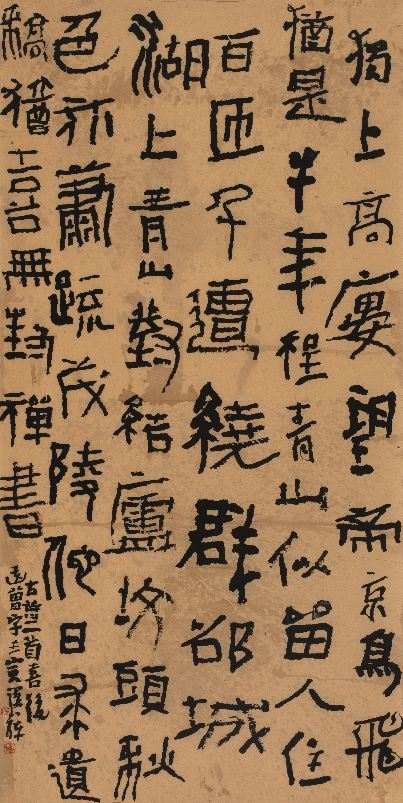 獨上高廔望帝京鳥飛
猶是半年程青山似留人住
百匝千遭繞群城
湖上青山對結廬墳頭秋
色亦蕭疏茂陵他日求遺
稿猶喜無封禪書
古詩二首喜後
遺曾字壬寅